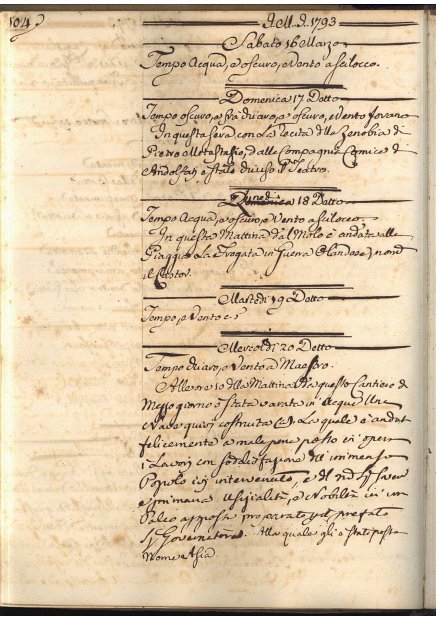 104
A.M.D. 1793
Sabato 16 Marzo
Tempo Acqua, e oscuro, e Vento a Scilocco.
Domenica 17 Detto
Tempo oscuro, e fra chiaro, e oscuro, e Vento
In questa sera con la Recita della Zenobia di
Pietro Metastasio, dalla Compagnia Comica di
è stato chiuso il Teatro.
Lunedì 18 Detto
Tempo Acqua, e oscuro, e Vento a Scilocco.
In questa Mattina dal Molo è andata alla
Spiaggia la Fregata in Guerra Olandese,
il Castor.
Martedì 19 Detto
Tempo, e Vento e
Mercoldì 20 Detto
Tempo chiaro, e Vento a Maestro.
Alle ore 10 della Mattina da questo Cantiere di
Mezzogiorno è stata varata in Acqua Una
Nave quivi costruita La quale è andata
felicemente
i Lavori con di un immenso
Popolo ivi intervenuto, e
e primaria Uffizialità, e Nobiltà in un
Palco apposta preparato pel prefato
Sig. Governatore. Alla quale gli è stato posto
Nome Asia.